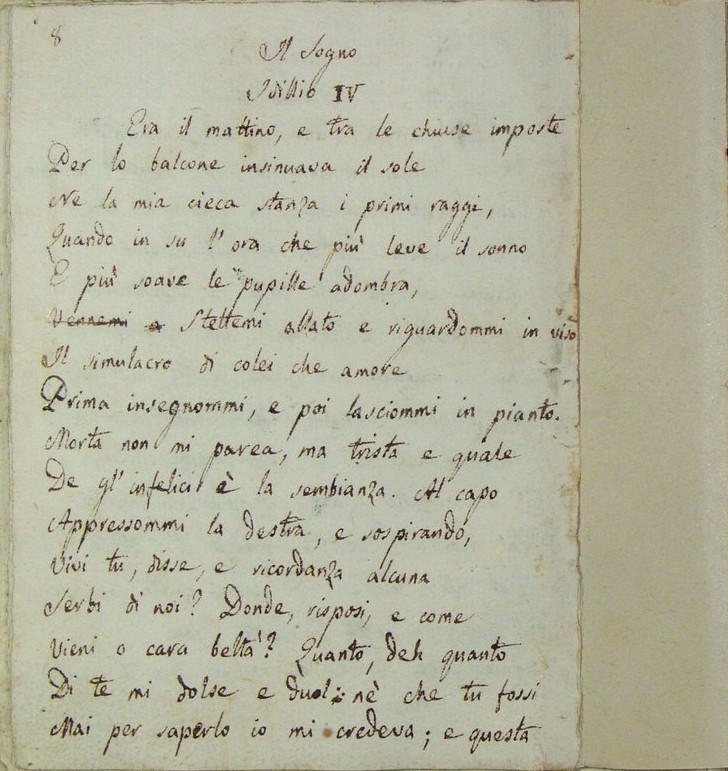 8
Il Sogno
Idillio IV
Era il mattino, e tra le chiuse imposte
Per lo balcone insinuava il sole
Ne la mia cieca stanza i primi raggi,
Quando in su l'ora che più leve il sonno
E più soave le pupille adombra,
Vennemi a Stettemi allato e riguardommi in viso
Il simulacro di colei che amore
Prima insegnommi, e poi lasciommi in pianto.
Morta non mi parea, ma trista e quale
De gl'infelici è la sembianza. Al capo
Appressommi la destra, e sospirando,
Vivi tu, disse, e ricordanza alcuna
Serbi di noi? Donde, risposi, e come
Vieni o cara beltà? Quanto, deh quanto
Di te mi dolse e duol: nè che tu fossi
Mai per saperlo io mi credeva; e questa